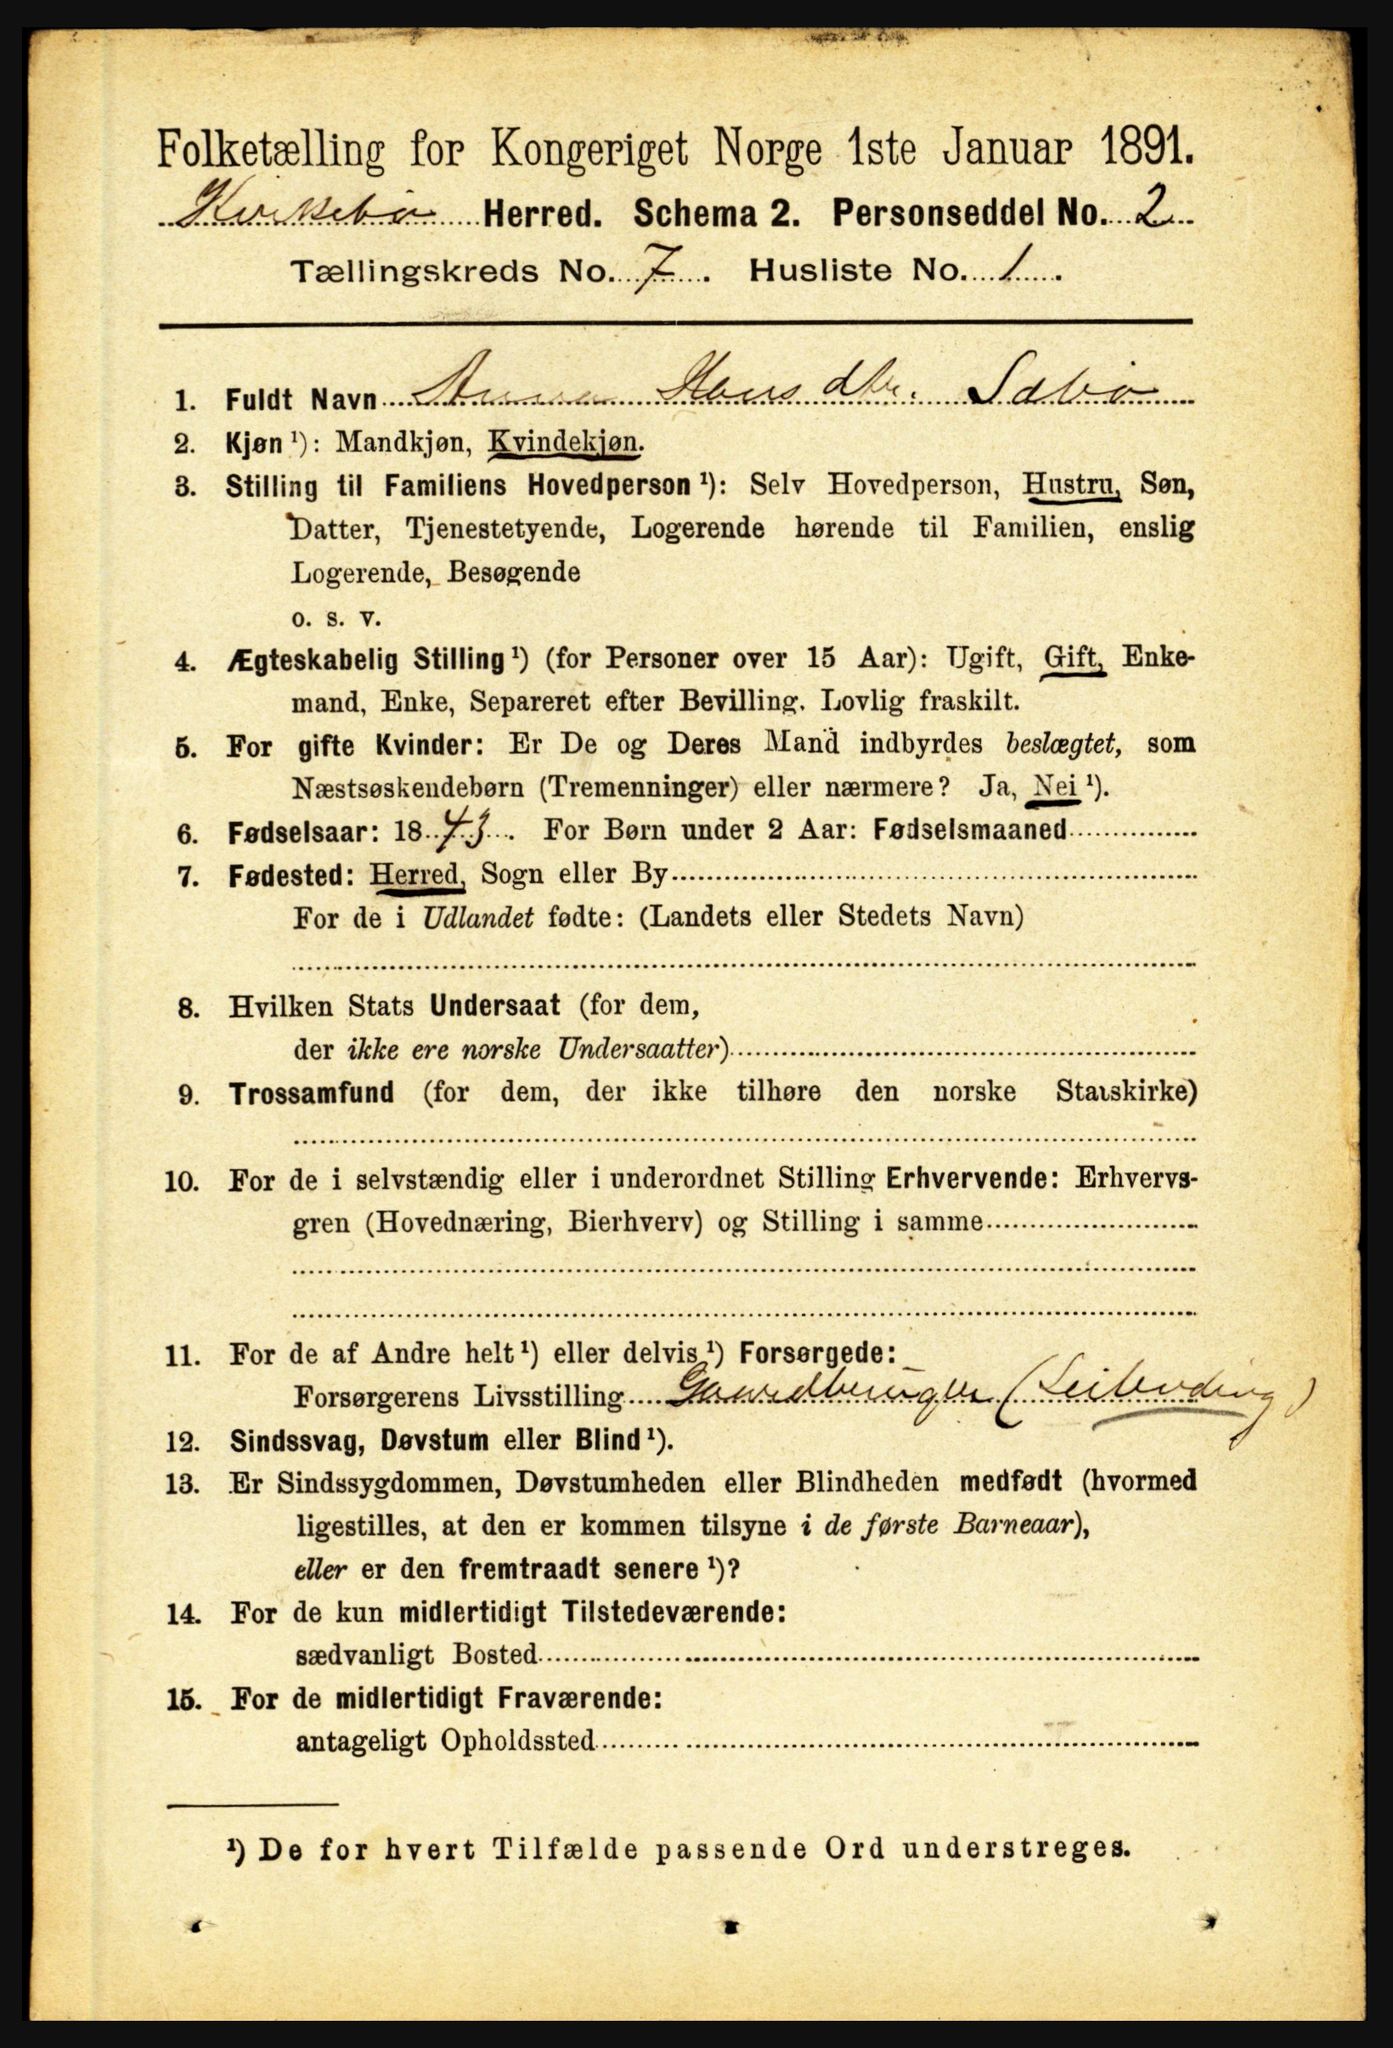 Folketælling for Kongeriget Norge 1ste Januar 1891.
Kirkebø Herred. Schema 2. Personseddel No. 2
Tællingskreds No. 7. Husliste No. 1.
1. Fuldt Navn Anna Hansdtr. Sæbø
2. Kjøn ¹): Mandkjøn, Kvindekjøn.
3. Stilling til Familiens Hovedperson ¹): Selv Hovedperson, Hustru, Søn,
Datter, Tjenestetyende, Logerende hørende til Familien, enslig
Logerende, Besøgende
o. s. v.
4. Ægteskabelig Stilling ¹) (for Personer over 15 Aar): Ugift, Gift, Enke-
mand, Enke, Separeret efter Bevilling. Lovlig fraskilt.
5. For gifte Kvinder: Er De og Deres Mand indbyrdes beslægtet, som
Næstsøskendebørn (Tremenninger) eller nærmere? Ja, Nei ¹).
6. Fødselsaar: 1843. For Børn under 2 Aar: Fødselsmaaned
7. Fødested: Herred, Sogn eller By
For de i Udlandet fødte: (Landets eller Stedets Navn)
8. Hvilken Stats Undersaat (for dem,
der ikke ere norske Undersaatter)
9. Trossamfund (for dem, der ikke tilhøre den norske Statskirke)
10. For de i selvstændig eller i underordnet Stilling Erhvervende: Erhvervs-
gren (Hovednæring, Bierhverv) og Stilling i samme
11. For de af Andre helt ¹) eller delvis ¹) Forsørgede:
Forsørgerens Livsstilling Gaardbruger (Leilending)
12. Sindssvag, Døvstum eller Blind ¹).
13. Er Sindssygdommen, Døvstumheden eller Blindheden medfødt (hvormed
ligestilles, at den er kommen tilsyne i de første Barneaar),
eller er den fremtraadt senere ¹)?
14. For de kun midlertidigt Tilstedeværende:
sædvanligt Bosted
15. For de midlertidigt Fraværende:
antageligt Opholdssted
¹) De for hvert Tilfælde passende Ord understreges.